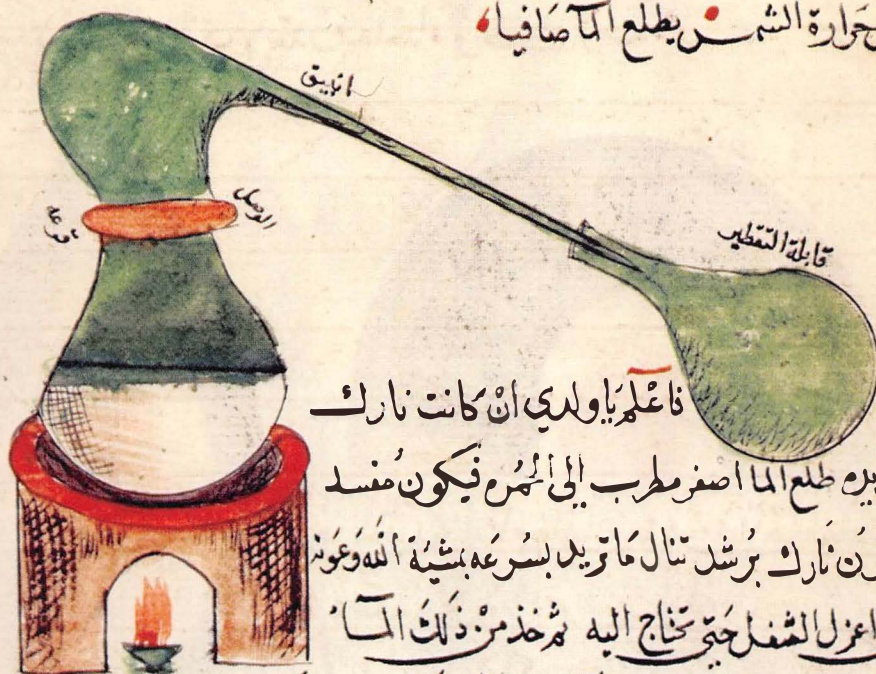 حرارة الشمس يطلع الما صافيا
انبيق
الوصل
قرعه
قابلة التقطير
فاعلم يا ولدي ان كانت نارك
طلع الما اصفر مطرب الى الحمره فيكون مفسد
نارك برشد تنال ما تريد بسرعه بمشيئة الله وعونه
اعزل الثفل حتى تحتاج اليه ثم خذ من ذلك الما